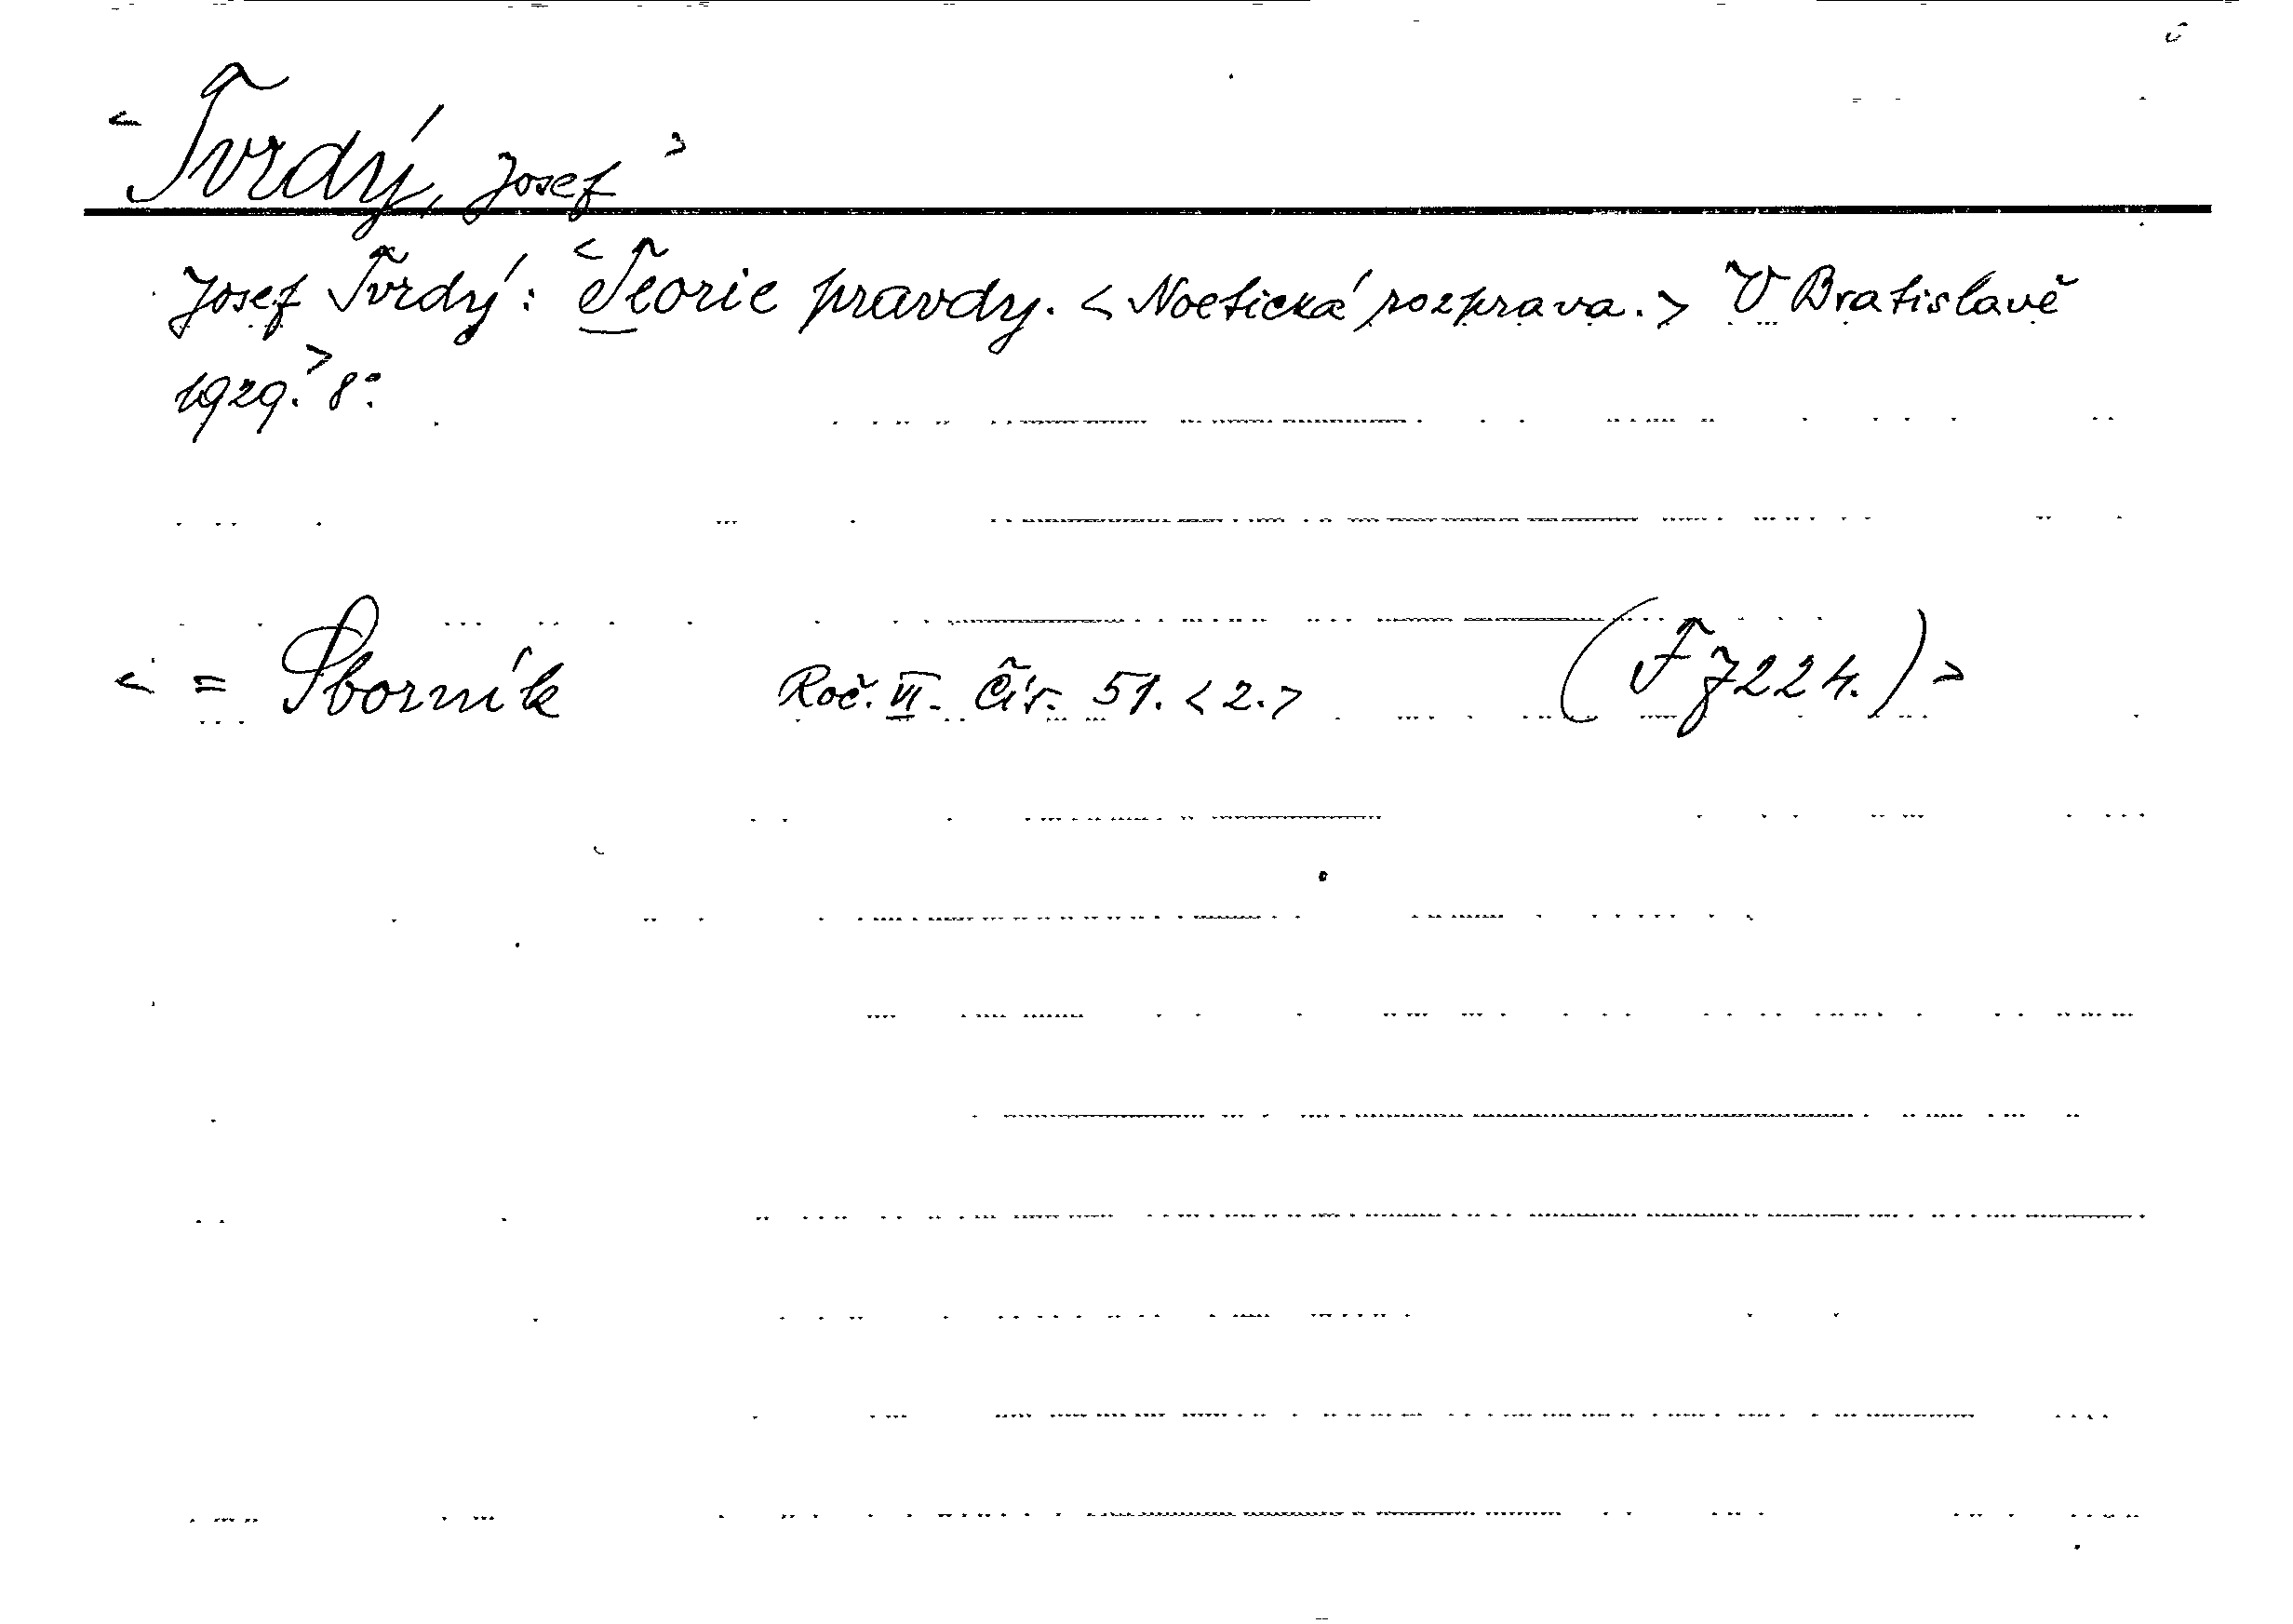 < Tvrdý, Josef >
Josef Tvrdý: < Teorie pravdy. < Noetická rozprava. > V Bratislavě
1929. > 8°.
< = Sborník Roč. VI. Čís. 51. < 2. > (F 7224.) >